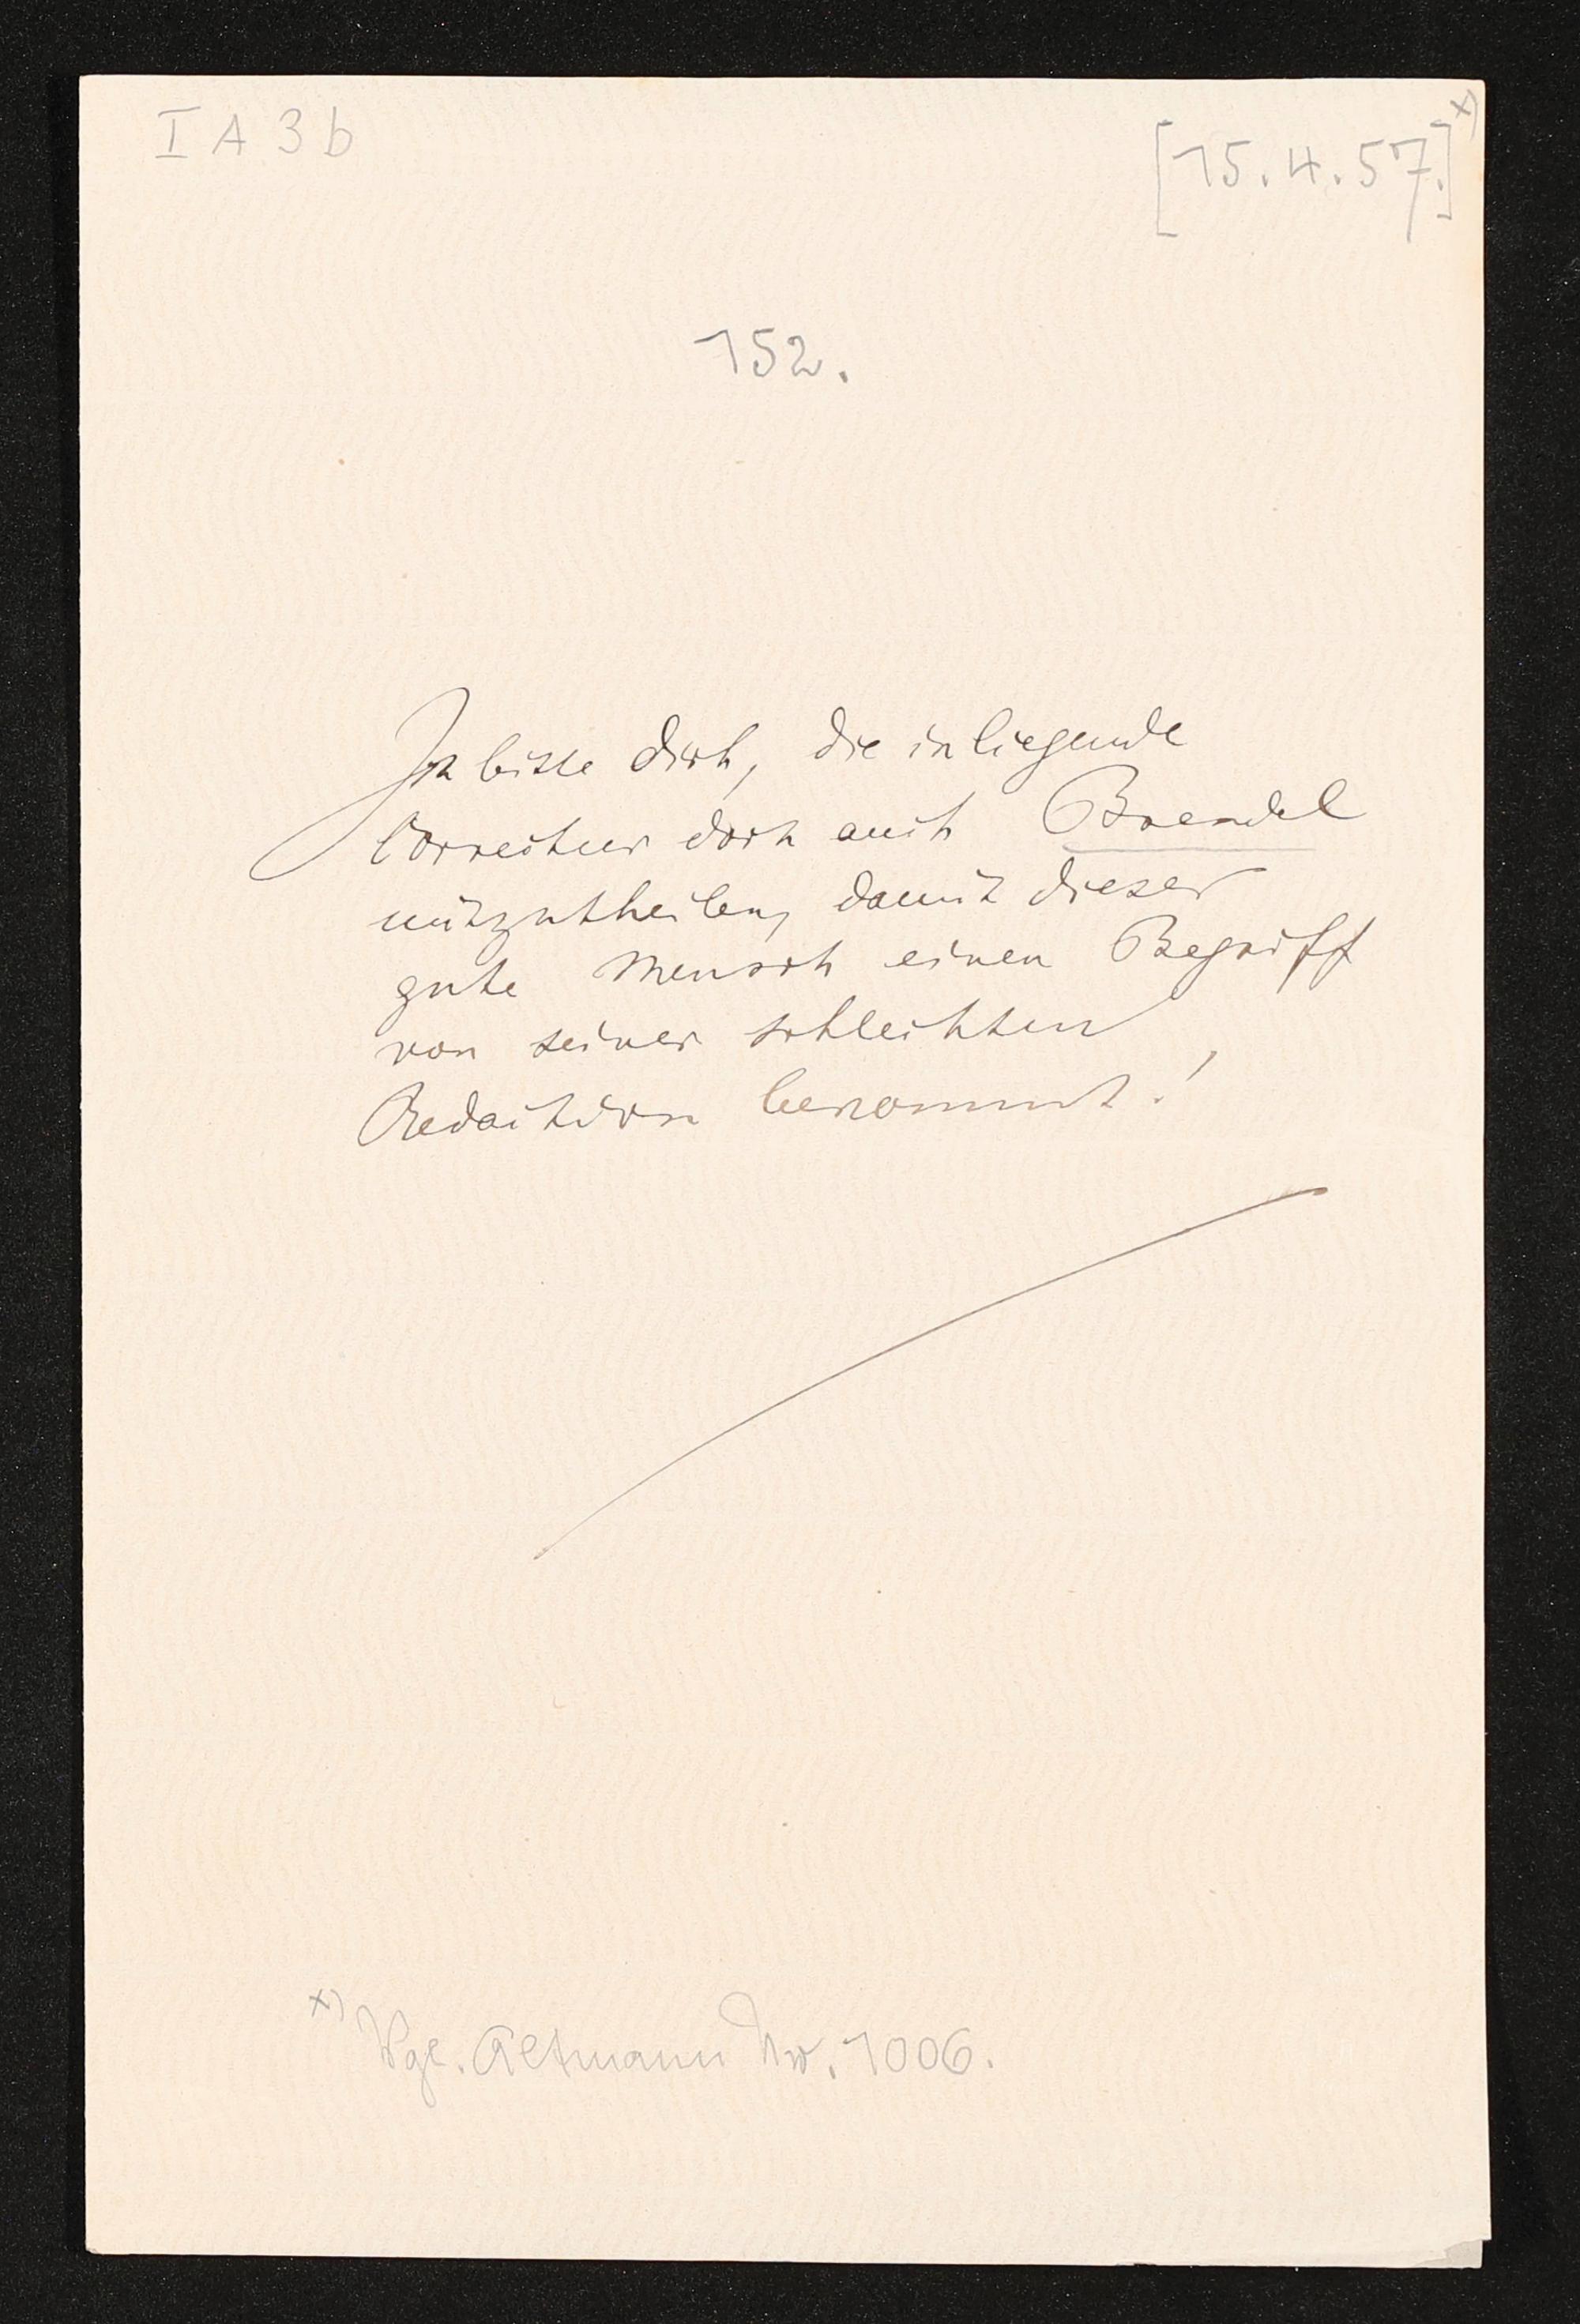 I A 3 b
[15.4.57.] x)
152.
Ich bitte Dich, die inliegende
Correctur doch auch Brendel
mitzutheilen, damit dieser
gute Mensch einen Begriff
von seiner schlechten
Redaction bekommt!
x) Vgl. Altmann Nr. 1006.